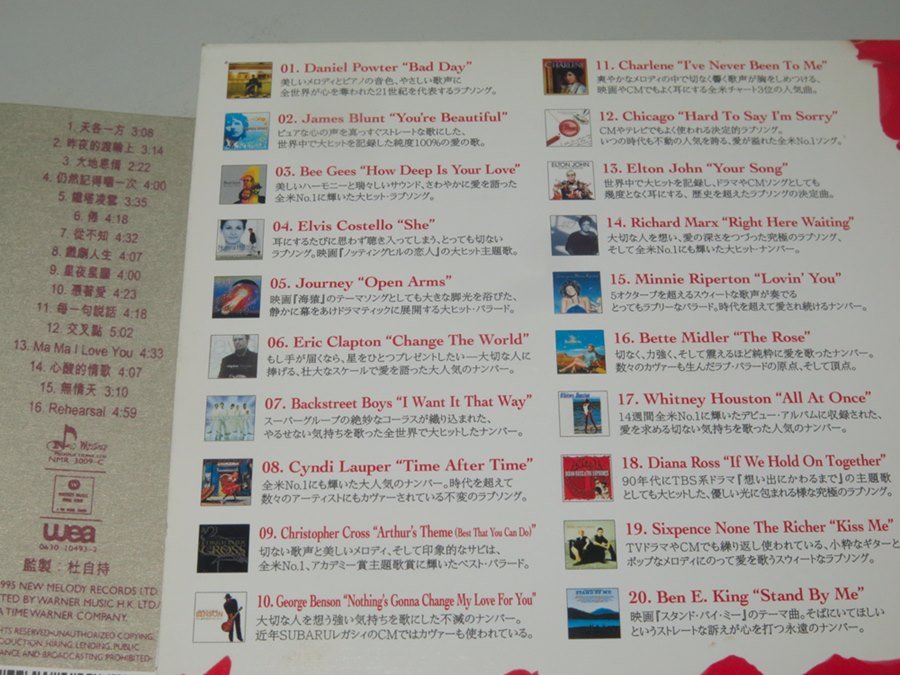 1. 天各一方 3:08
2. 昨夜的渡輪上 3:14
3. 大地恩情 2:22
4. 仍然記得嗰一次 4:00
5. 鐵塔凌雲 3:35
6. 倦 4:18
7. 從不知 4:32
8. 戲劇人生 4:07
9. 星夜星塵 4:00
10. 憑著愛 4:23
11. 每一句說話 4:18
12. 交叉點 5:02
13. Ma Ma I Love You 4:33
14. 心酸的情歌 4:07
15. 無情天 3:10
16. Rehearsal 4:59
NMR 3009-C
wea
0630-10493-2
監製：杜自持
1995 NEW MELODY RECORDS LTD.
TED BY WARNER MUSIC H.K. LTD.
A TIME WARNER COMPANY.
HTS RESERVED-UNAUTHORIZED COPYING,
ODUCTION, HIRING, LENDING, PUBLIC
ANCE AND BROADCASTING PROHIBITED.
01. Daniel Powter “Bad Day”
美しいメロディとピアノの音色、やさしい歌声に
全世界が心を奪われた21世紀を代表するラブソング。
02. James Blunt “You're Beautiful”
ピュアな心の声を真っすぐストレートな歌にした、
世界中で大ヒットを記録した純度100%の愛の歌。
03. Bee Gees “How Deep Is Your Love”
美しいハーモニーと瑞々しいサウンド、さわやかに愛を語った
全米No.1に輝いた大ヒット・ラブソング。
04. Elvis Costello “She”
耳にするたびに思わず聴き入ってしまう、とっても切ない
ラブソング。映画『ノッティングヒルの恋人』の大ヒット主題歌。
05. Journey “Open Arms”
映画『海猿』のテーマソングとしても大きな脚光を浴びた、
静かに幕をあけドラマティックに展開する大ヒット・バラード。
06. Eric Clapton “Change The World”
もし手が届くなら、星をひとつプレゼントしたい―大切な人に
捧げる、壮大なスケールで愛を語った大人気のナンバー。
07. Backstreet Boys “I Want It That Way”
スーパーグループの絶妙なコーラスが織り込まれた、
やるせない気持ちを歌った全世界で大ヒットしたナンバー。
08. Cyndi Lauper “Time After Time”
全米No.1にも輝いた大人気のナンバー。時代を超えて
数々のアーティストにもカヴァーされている不変のラブソング。
09. Christopher Cross “Arthur's Theme (Best That You Can Do)”
切ない歌声と美しいメロディ、そして印象的なサビは、
全米No.1、アカデミー賞主題歌賞に輝いたベスト・バラード。
10. George Benson “Nothing's Gonna Change My Love For You”
大切な人を想う強い気持ちを歌にした不滅のナンバー。
近年SUBARUレガシィのCMではカヴァーも使われている。
11. Charlene “I've Never Been To Me”
爽やかなメロディの中で切なく響く歌声が胸をしめつける、
映画やCMでもよく耳にする全米チャート3位の人気曲。
12. Chicago “Hard To Say I'm Sorry”
CMやテレビでもよく使われる決定的ラブソング。
いつの時代も不動の人気を誇る、愛が溢れた全米No.1ソング。
13. Elton John “Your Song”
世界中で大ヒットを記録し、ドラマやCMソングとしても
幾度となく耳にする、歴史を超えたラブソングの決定曲。
14. Richard Marx “Right Here Waiting”
大切な人を想い、愛の深さをつづった究極のラブソング、
そして全米No.1にも輝いた大ヒット・ナンバー。
15. Minnie Riperton “Lovin' You”
5オクターブを超えるスウィートな歌声が奏でる
とってもラブリーなバラード。時代を超えて愛され続けるナンバー。
16. Bette Midler “The Rose”
切なく、力強く、そして震えるほど純粋に愛を歌ったナンバー。
数々のカヴァーも生んだラブ・バラードの原点、そして頂点。
17. Whitney Houston “All At Once”
14週間全米No.1に輝いたデビュー・アルバムに収録された、
愛を求める切ない気持ちを歌った人気のナンバー。
18. Diana Ross “If We Hold On Together”
90年代にTBS系ドラマ『想い出にかわるまで』の主題歌
として大ヒットした、優しい光に包まれる様な究極のラブソング。
19. Sixpence None The Richer “Kiss Me”
TVドラマやCMでも繰り返し使われている、小粋なギターと
ポップなメロディにのって愛を歌うスウィートなラブソング。
20. Ben E. King “Stand By Me”
映画『スタンド・バイ・ミー』のテーマ曲。そばにいてほしい
というストレートな訴えが心を打つ永遠のナンバー。